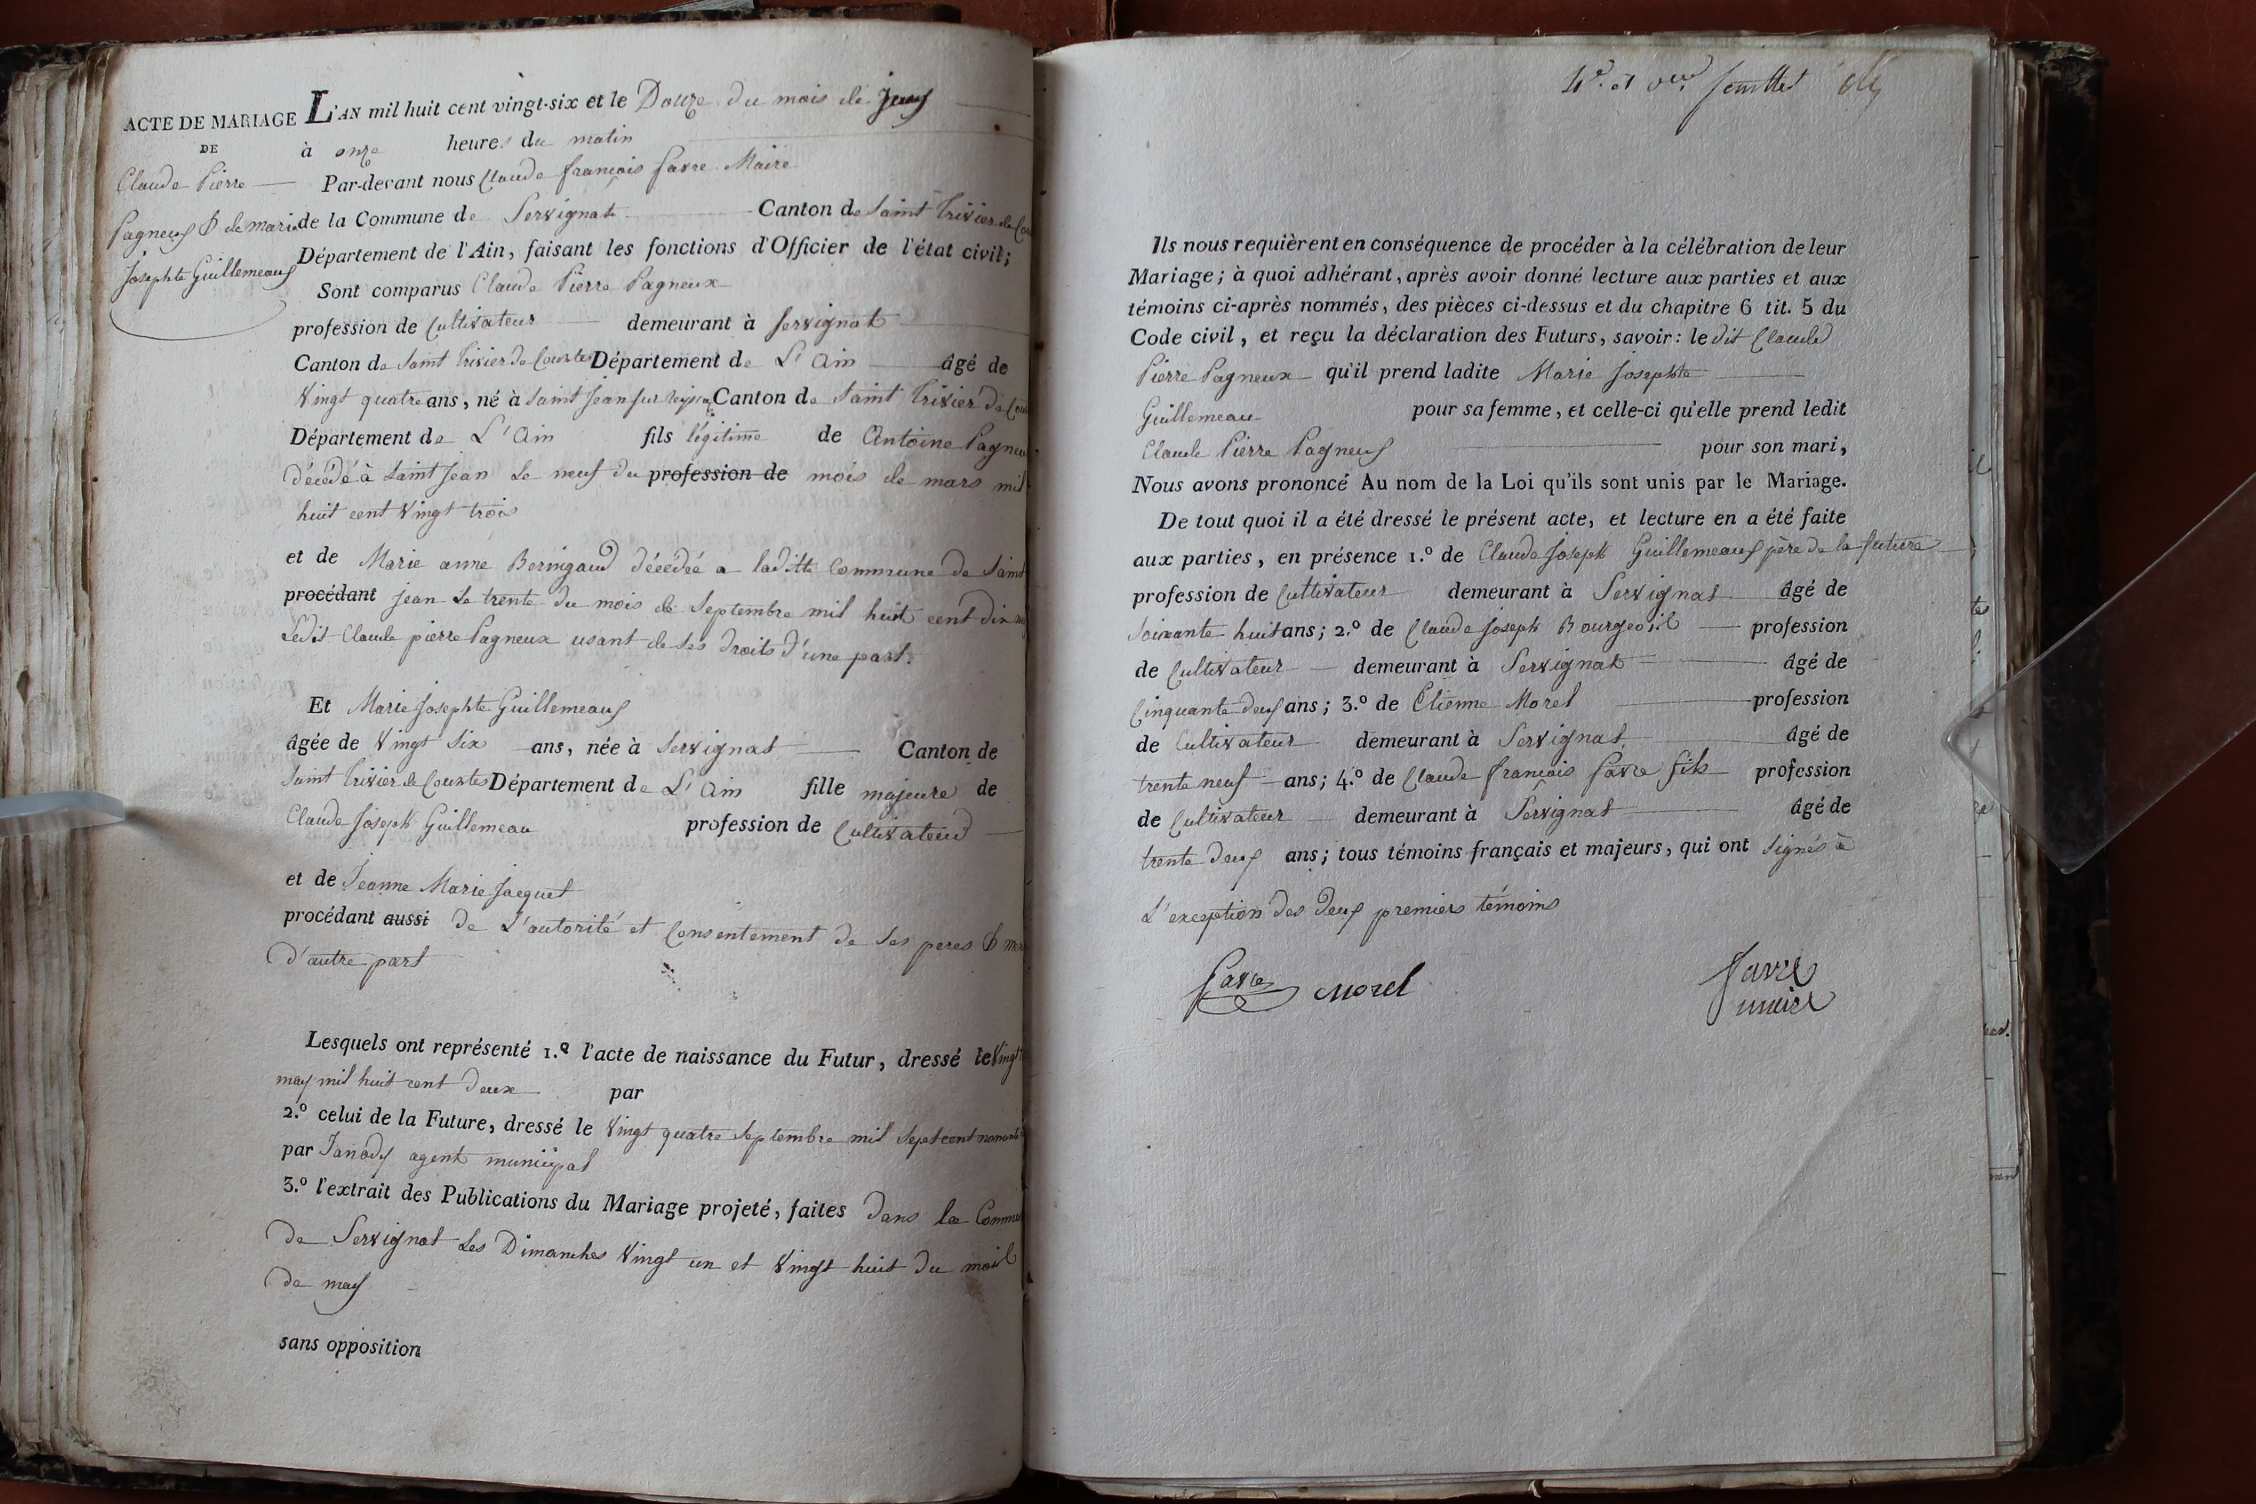 ACTE DE MARIAGE
DE
Claude Pierre
Pagneux & de marie
Josephte Guillemeaux
L'AN mil huit cent vingt-six et le Douze du mois de juin
à onze heures du matin
Par-devant nous Claude françois favre Maire
de la Commune de Servignat Canton de Saint Trivier de Cour
Département de l'Ain, faisant les fonctions d'Officier de l'état civil;
Sont comparus Claude Pierre Pagneux
profession de Cultivateur demeurant à Servignat
Canton de Saint Trivier de Courtes Département de L'Ain âgé de
Vingt quatre ans, né à Saint Jean sur reyssouze Canton de Saint Trivier de Cour
Département de L'Ain fils légitime de Antoine Pagneux
décédé à Saint Jean Le neuf du profession de mois de mars mil
huit cent Vingt trois
et de Marie anne Beringaud décedée a laditte Commune de Saint
procédant jean Le trente du mois de Septembre mil huit cent dix
Ledit Claude pierre Pagneux usant de ses droits d'une part.
Et Marie Josephte Guillemeaux
âgée de Vingt Six ans, née à Servignat Canton de
Saint Trivier de Courtes Département de L'Ain fille majeure de
Claude Joseph Guillemeau profession de Cultivateur
et de Jeanne Marie Jacquet
procédant aussi de L'autorité et Consentement de ses peres & mere
d'autre part
Lesquels ont représenté 1.º l'acte de naissance du Futur, dressé le Vingt
may mil huit cent deux par
2.º celui de la Future, dressé le Vingt quatre Septembre mil Sept cent nonante
par Janody agent municipal
3.º l'extrait des Publications du Mariage projeté, faites dans la Commune
de Servignat Les Dimanches Vingt un et Vingt huit du mois
de may
sans opposition
feuillet
Ils nous requièrent en conséquence de procéder à la célébration de leur
Mariage; à quoi adhérant, après avoir donné lecture aux parties et aux
témoins ci-après nommés, des pièces ci-dessus et du chapitre 6 tit. 5 du
Code civil, et reçu la déclaration des Futurs, savoir: le dit Claude
Pierre Pagneux qu'il prend ladite Marie Josephte
Guillemeau pour sa femme, et celle-ci qu'elle prend ledit
Claude Pierre Pagneux pour son mari,
Nous avons prononcé Au nom de la Loi qu'ils sont unis par le Mariage.
De tout quoi il a été dressé le présent acte, et lecture en a été faite
aux parties, en présence 1.º de Claude Joseph Guillemeaux père de la future
profession de Cultivateur demeurant à Servignat âgé de
Soixante huit ans; 2.º de Claude Joseph Bourgeois profession
de Cultivateur demeurant à Servignat âgé de
Cinquante deux ans; 3.º de Etienne Morel profession
de Cultivateur demeurant à Servignat âgé de
trente neuf ans; 4.º de Claude françois favre fils profession
de Cultivateur demeurant à Servignat âgé de
trente deux ans; tous témoins français et majeurs, qui ont signés à
L'exception des deux premiers témoins
favre Morel favre
maire